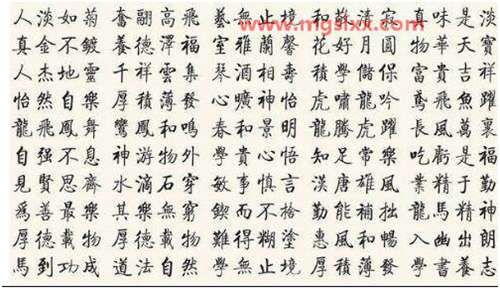 www.mgsixx.com
人淡如菊 奮翮高飛 藝無止境 和清寂 真味是淡
真金不鍍 養德澤福 室雅蘭馨 花好月圓 物華天寶
人杰地靈 千祥雲集 琴酒相壽 積學儲保 富貴吉祥
怡然自樂 厚積薄發 心曠神怡 虎嘯龍吟 鳶飛魚躍
龍飛鳳舞 鸞鳳和鳴 春和景明 龍騰虎躍 長風萬裏
自强不息 神游物外 學貴心悟 知足常樂 吃虧是福
見賢思齊 水滴石穿 敏事慎言 漢唐雄風 業精于勤
爲善最樂 其樂無窮 鍥而不捨 勤能補拙 龍馬精神
厚德載物 厚德載物 難得糊塗 惠風和暢 入幽出朗
馬到功成 道法自然 學無止境 厚積薄發 學書養志